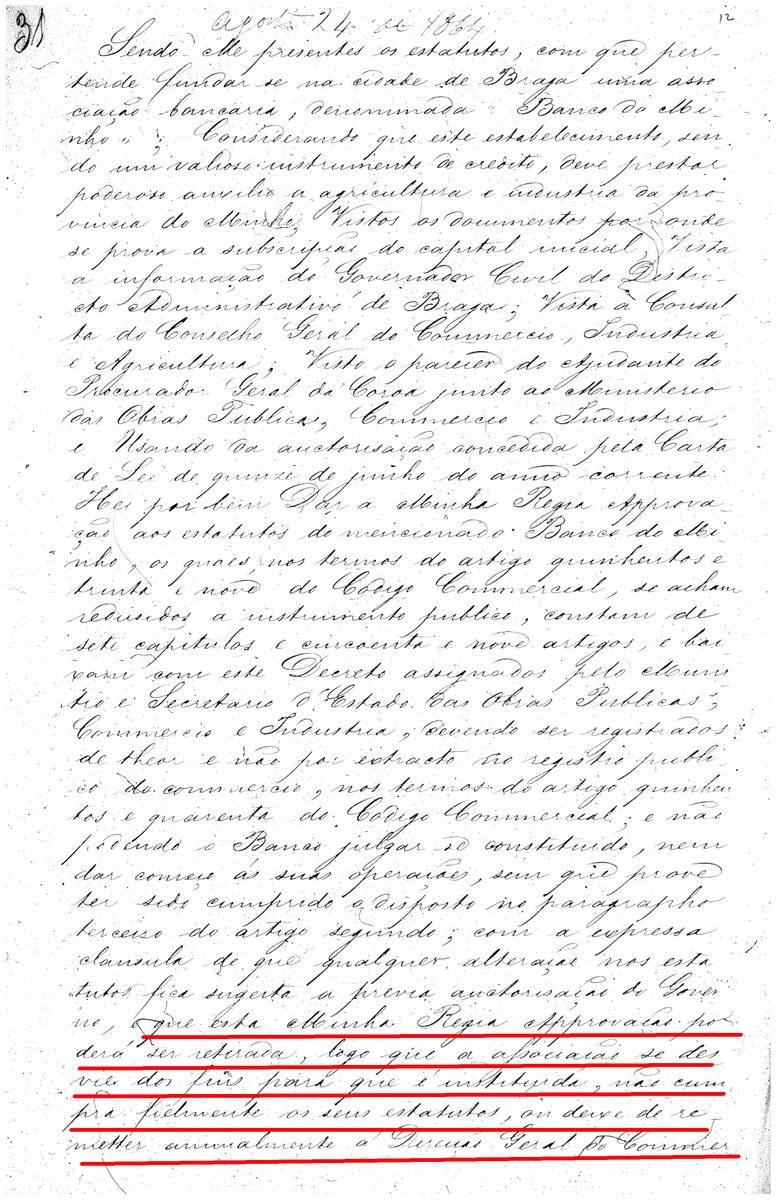 31
Agosto 24 de 1864
12
Sendo-Me presentes os estatutos, com que per-
tende fundar se na cidade de Braga uma asso-
ciação bancaria, denominada "Banco do Mi-
nho"; Considerando que este estabelecimento, sen-
do um valioso instrumento de credito, deve prestar
poderoso auxilio a agricultura e industria da pro-
vincia do Minho; Vistos os documentos por onde
se prova a subscripção do capital inicial; Vista
a informação do Governador Civil do Distri-
cto Administrativo de Braga; Vista a Consul-
ta do Conselho Geral do Commercio, Industria
e Agricultura; Visto o parecer do Ajudante do
Procurador Geral da Coroa junto ao Ministerio
das Obras Publicas, Commercio e Industria;
e Usando da auctorisação concedida pela Carta
de Lei de quinze de junho do anno corrente:
Hei por bem Dar a Minha Regia Approva-
ção aos estatutos do mencionado Banco do Mi-
nho, os quaes nos termos do artigo quinhentos e
trinta e nove do Codigo Commercial, se acham
redusidos a instrumento publico, constam de
sete capitulos e cincoenta e nove artigos, e bai-
xam com este Decreto assignados pelo Minis
tro e Secretario d'Estado das Obras Publicas,
Commercio e Industria, devendo ser registrados
de theor e não por extracto no registro publi-
co do commercio, nos termos do artigo quinhen
tos e quarenta do Codigo Commercial; e não
podendo o Banco julgar-se constituido, nem
dar começo ás suas operações, sem que prove
ter sido cumprido o disposto no paragrapho
terceiro do artigo segundo; com a expressa
clausula de que qualquer alteração nos esta
tutos fica sugeita a previa auctorisação do Gover
no, e que esta Minha Regia Approvação po
derá ser retirada, logo que a associação se des
vie dos fins para que é instituida, não cum
pra fielmente os seus estatutos, ou deixe de re
metter annualmente á Direcção Geral do Commer